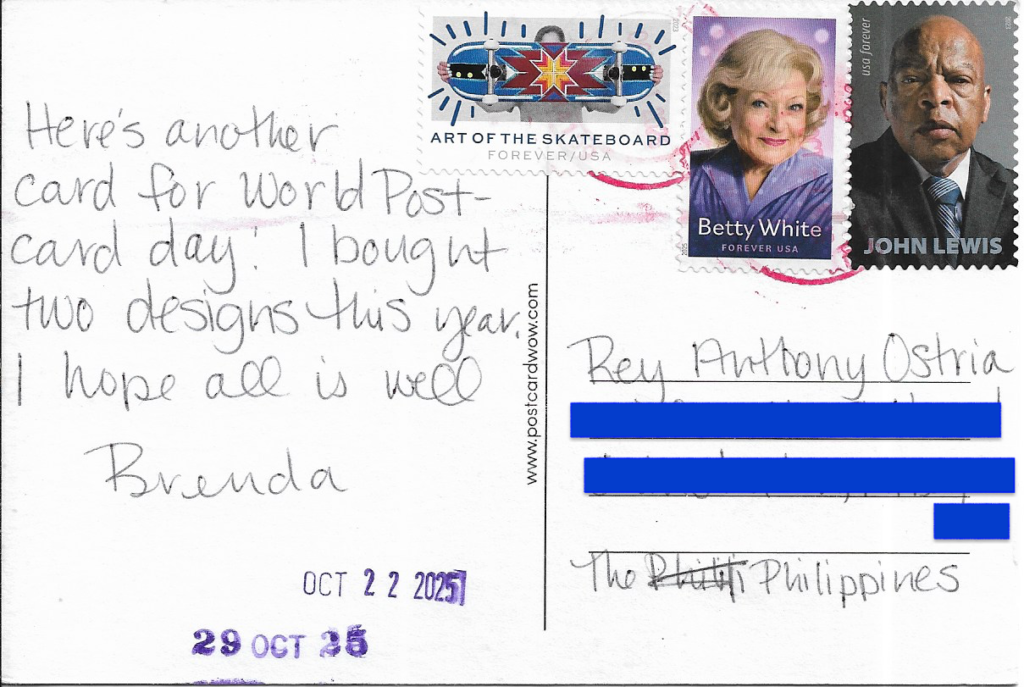 Here's another
card for World Post-
card day! I bought
two designs this year.
I hope all is well
Brenda
OCT 22 2025
29 OCT 25
www.postcardwow.com
ART OF THE SKATEBOARD
FOREVER/USA
2023
Betty White
FOREVER USA
2025
usa forever
2023
JOHN LEWIS
Rey Anthony Ostria
The Philippines